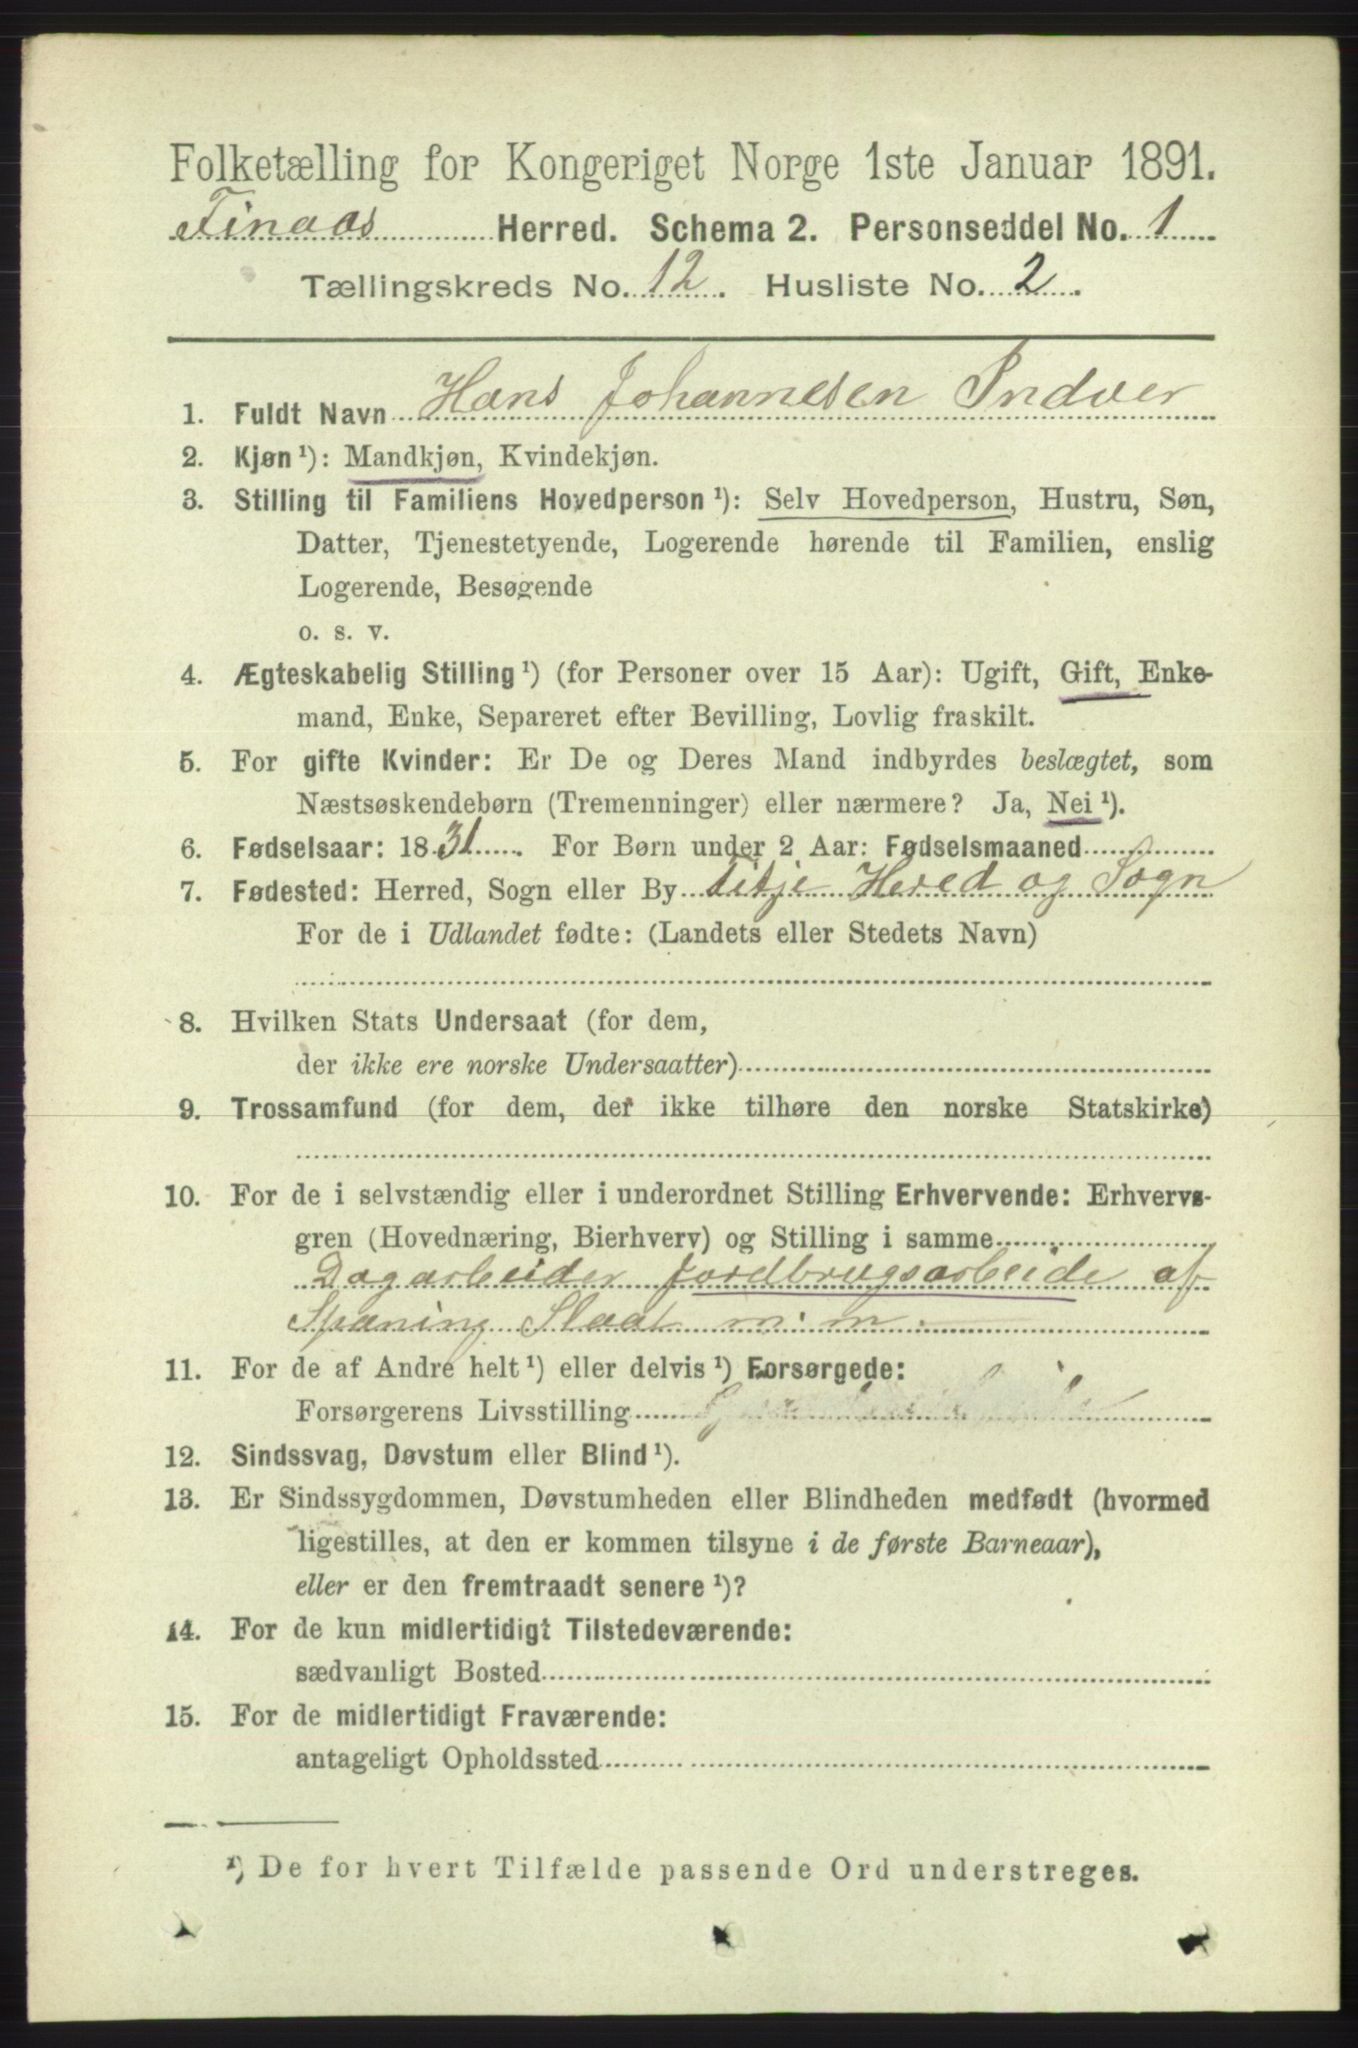 Folketælling for Kongeriget Norge 1ste Januar 1891.
Finaas Herred. Schema 2. Personseddel No. 1
Tællingskreds No. 12. Husliste No. 2.
1. Fuldt Navn Hans Johannesen Indvær
2. Kjøn ¹): Mandkjøn, Kvindekjøn.
3. Stilling til Familiens Hovedperson ¹): Selv Hovedperson, Hustru, Søn,
Datter, Tjenestetyende, Logerende hørende til Familien, enslig
Logerende, Besøgende
o. s. v.
4. Ægteskabelig Stilling ¹) (for Personer over 15 Aar): Ugift, Gift, Enke-
mand, Enke, Separeret efter Bevilling, Lovlig fraskilt.
5. For gifte Kvinder: Er De og Deres Mand indbyrdes beslægtet, som
Næstsøskendebørn (Tremenninger) eller nærmere? Ja, Nei ¹).
6. Fødselsaar: 1831. For Børn under 2 Aar: Fødselsmaaned
7. Fødested: Herred, Sogn eller By Fitje Hered og Sogn
For de i Udlandet fødte: (Landets eller Stedets Navn)
8. Hvilken Stats Undersaat (for dem,
der ikke ere norske Undersaatter)
9. Trossamfund (for dem, der ikke tilhøre den norske Statskirke)
10. For de i selvstændig eller i underordnet Stilling Erhvervende: Erhvervs-
gren (Hovednæring, Bierhverv) og Stilling i samme
Dagarbeider Jordbrugsarbeide af
Spaning Slaat m: m.
11. For de af Andre helt ¹) eller delvis ¹) Forsørgede:
Forsørgerens Livsstilling
12. Sindssvag, Døvstum eller Blind ¹).
13. Er Sindssygdommen, Døvstumheden eller Blindheden medfødt (hvormed
ligestilles, at den er kommen tilsyne i de første Barneaar),
eller er den fremtraadt senere ¹)?
14. For de kun midlertidigt Tilstedeværende:
sædvanligt Bosted
15. For de midlertidigt Fraværende:
antageligt Opholdssted
¹) De for hvert Tilfælde passende Ord understreges.